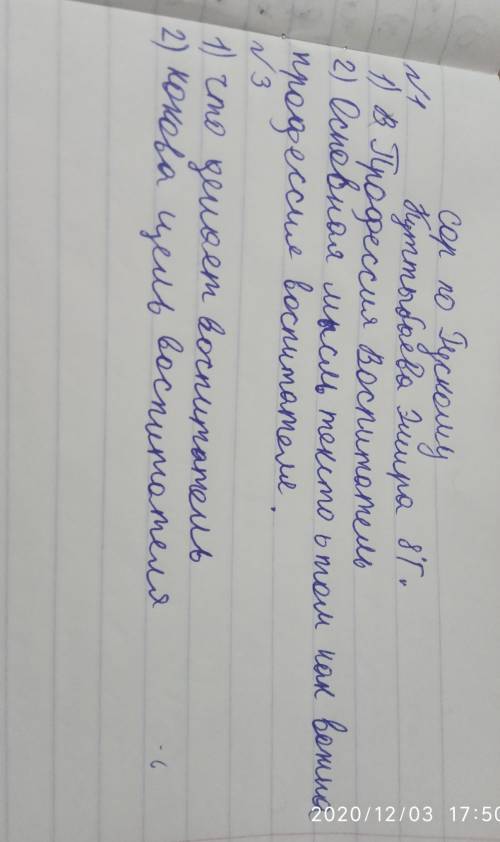 Сор по Рускому
Куттыбаева Эмира 8"Г".
№1
1) В Профессия Воспитатель
2) Основная мысль текста о том как важна
профессия воспитателя.
№3
1) Что делает воспитатель
2) какова цель воспитателя
2020/12/03 17:50